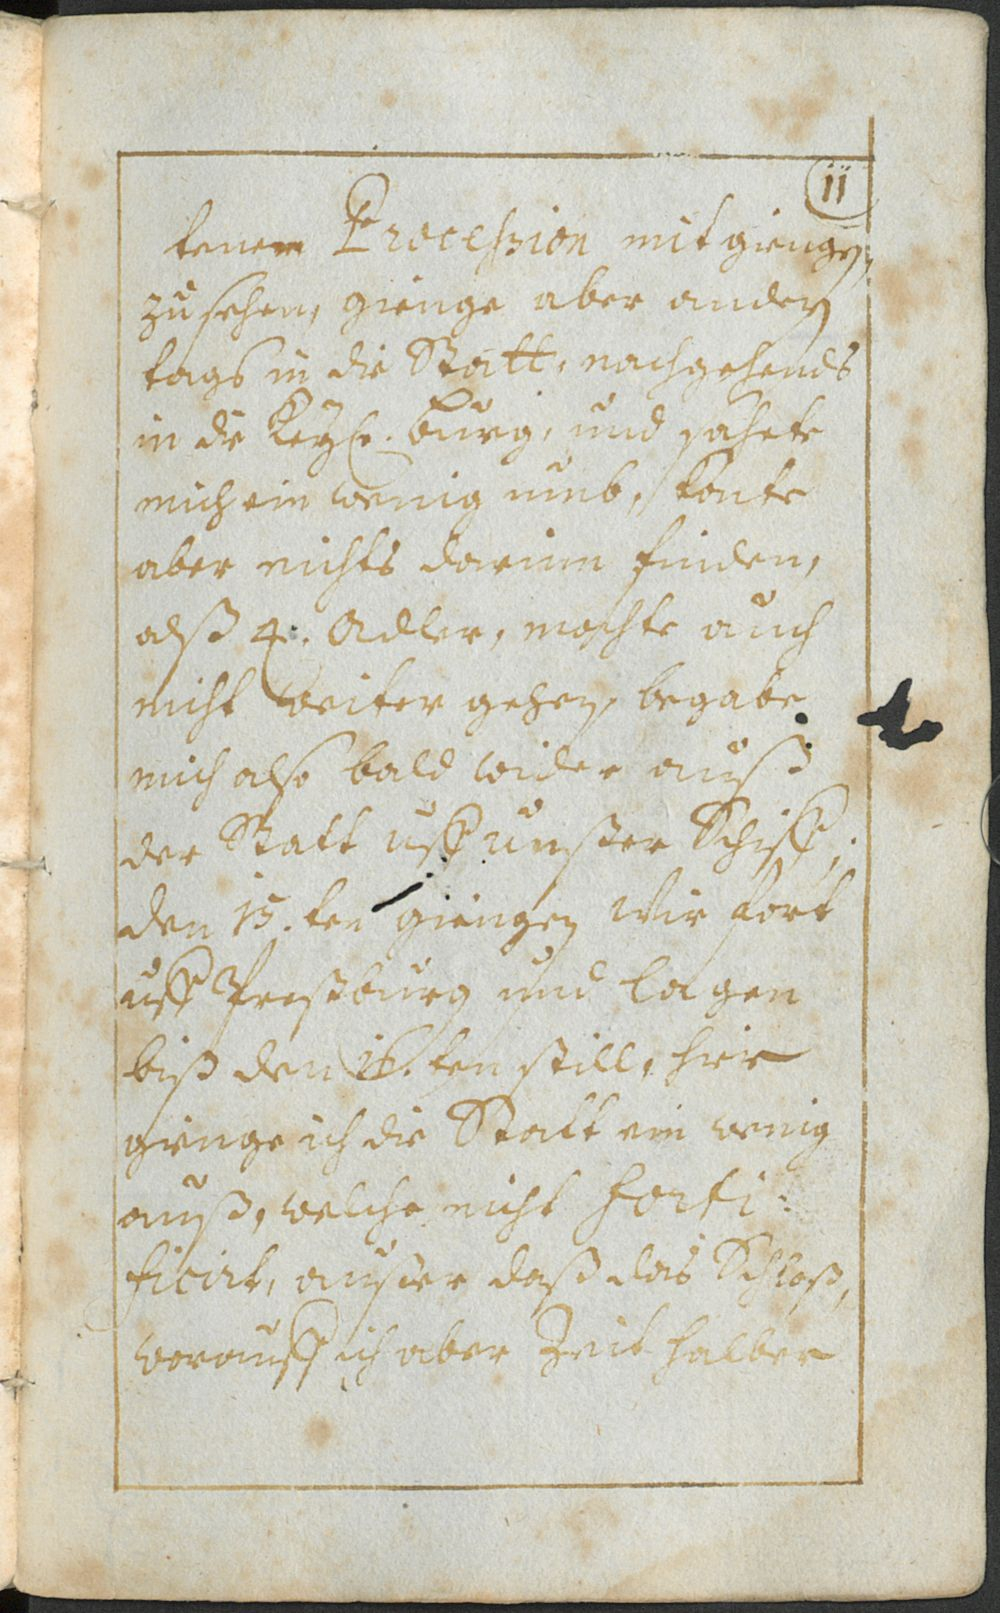 11
tenen Procession mit giengen,
zu sehen, gienge aber andern
tags in die Statt, nachgehends
in die Keys. burg, und sahete
mich ein wenig umb, konte
aber nichts darinn finden,
alß 4. Adler, mochte auch
nicht weiter gehen, begabe
mich also bald wider auß
der Statt uff unßer Schiff,
den 15.ten giengen wir fort
uff Preßburg und lagen
biß den 18.ten still, hier
gienge ich die Statt ein wenig
auß, welche nicht forti
ficirt, außer daß das Schloß,
worauff ich aber Zeit halber